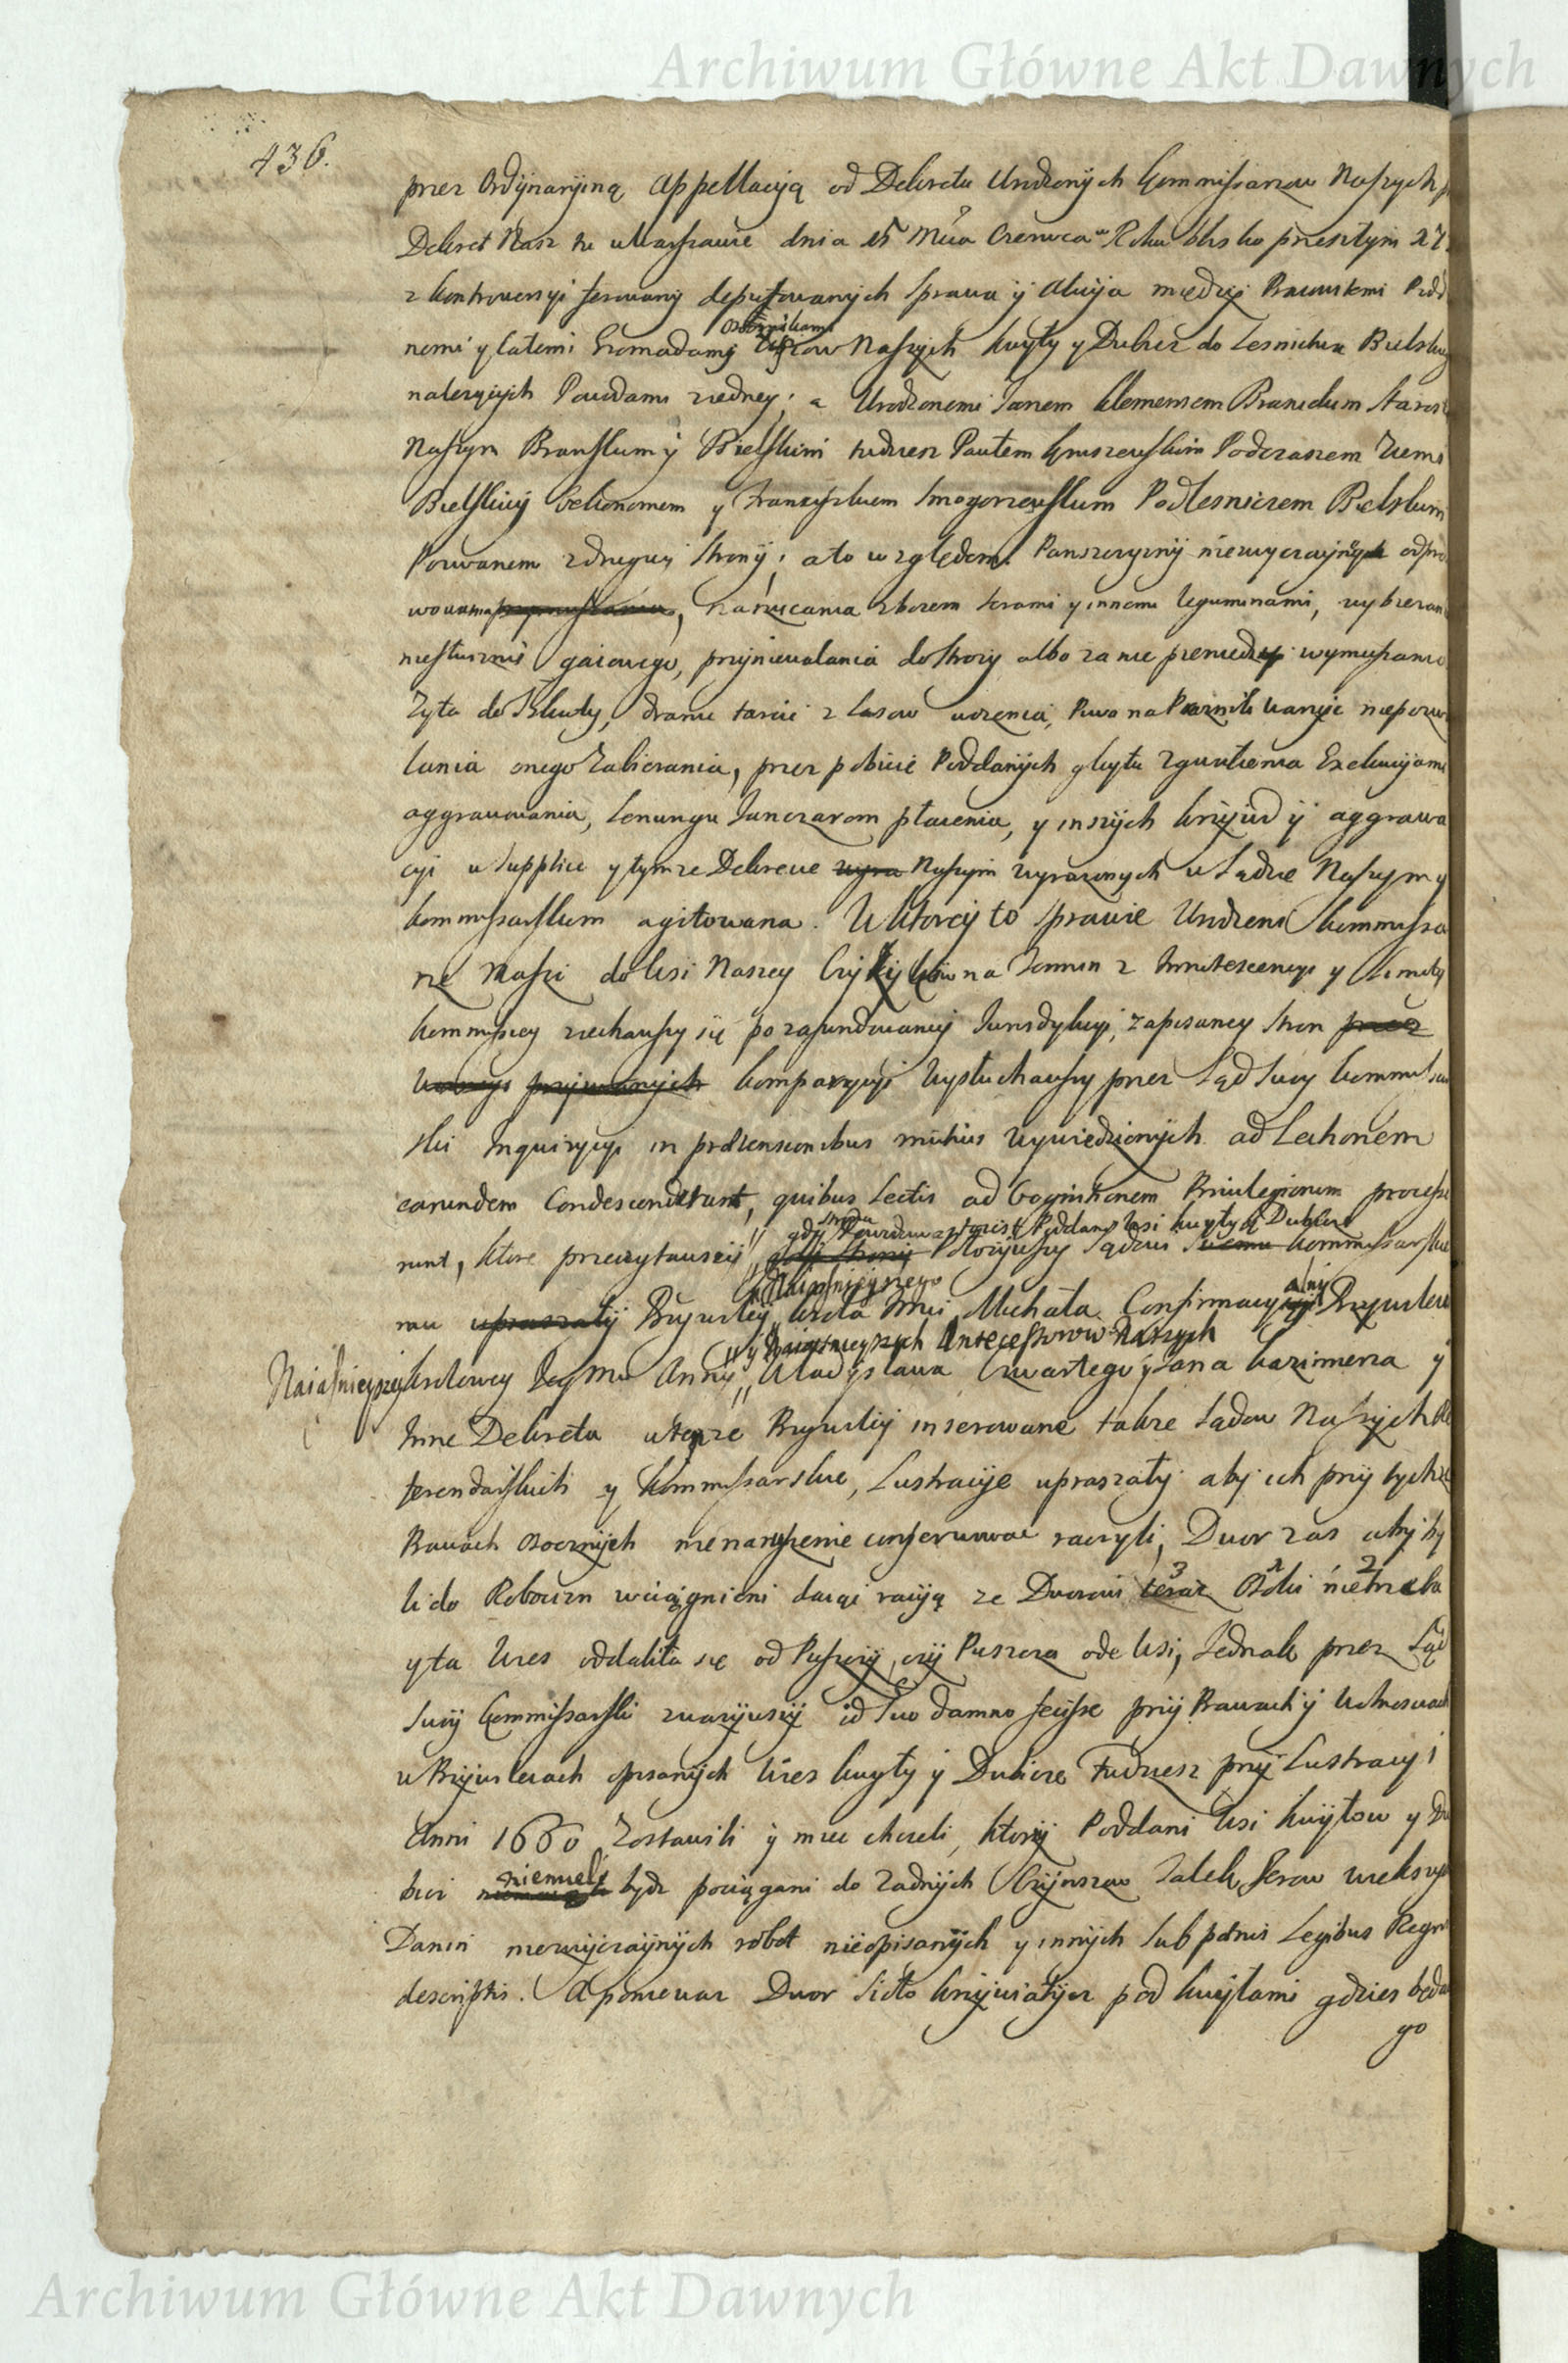 Archiwum Główne Akt Dawnych
436.
przez Ordynaryiną Appellacyją od Dekretu Urodzonych Kommissarzow Naszych
Dekret Nasz tu w Warszawie dnia 15 Mca Czerwca Roku blisko przeszłym
z kontrowersyi ferowany deputowanych sprawa y akcyja między Pracowitemi
nemi y całemi Gromadamy Osocznikami Wsiow Naszych Kuyły y Dubicz do Lesnictwa Bielsky
należących Powodami z iedney; a Urodzonemi Janem Klemensem Branickim Staros
Naszym Branskim y Bielskim tudziesz Pawłem Gruszewskim Podczaszem Ziemi
Bielskiey Oekonomem y Franciszkiem Smogorzewskim Podlesniczem Bielskim
Pozwanem z drugiey strony; a to względem Panszczyzny niezwyczaynych odpra
wowania, narzucania zbożem serami y innemi leguminami, wybieran
niesłusznie gaiowego, przyniewalania do stroży albo za nie pieniędzy wymuszania
Zyta do Kludy, dranic tarcic z Lasow wożenia, Piwa na warzyć niepozw
lania onego zabierania, przez pobicie Poddanych gwałtu Exekucyjami
aggrawowania, Lenungu Janczarom płacenia, y inszych krzywd y aggrawa
cyi w supplice y tymze Dekrecie Naszym wyrażonych w Sądzie Naszym y
kommissarskim agitowana. W ktorey to sprawie Urodzeni kommissa
rze Naszi do Wsi Naszey na Termin z Innotescencyi y
kommissyey ziechawszy się po zafundowaniey Jurisdykcyi, zapisaney stron przez
komparycyi Wysłuchawszy przez Sąd swoy kommissar
ski Inquizycyi in praetensionibus mutuis wywiedzionych ad Lectionem
earundem Condescenderunt, quibus Lectis ad Cognitionem Privilegiorum processe
runt, ktore przeczytawszy gdy strona Powodowa to iest Poddani Wsi Kuyły y Dubicze
Połozywszy Sądowi swemu kommissarskie
mu upraszały Przywiley Najasnieyszego Krola Jmci Michała Confirmacyiny Przywilow
y Naiasnieyszych Antecessorow Naszych
Naiasnieyszey Krolowey Jey Mci Anny Władysława Czwartego y Jana Kazimierza y
Inne Dekreta w tymze Przywiley inserowane takze Sądow Naszych Re
ferendarskich y kommissarskie, Lustracyje upraszały aby ich przy tychze
Prawach Osocznych nienaruszenie conserwować raczyli, Dwor zas aby by
li do Roboczn wciągnieni daiąc racyją ze Dworowi teraz Osoki nietrzeba
y ta Wies oddaliła się od Puszczy, czy Puszcza ode Wsi, Jednak przez Sąd
swoy Commissarski zwarzywszy id suo damno fecisse przy Prawach y Wolnosciach
w Przywileiach opisanych Wies Kuyły y Dubicze Tudziesz przy Lustracyi
Anni 1660 Zostawili y miec chcieli, ktory Poddani Wsi Kuyłow y Du
bicz niemieli bydz pociągani do żadnych Czynszow Jalek Serow większych
Danin niezwyczaynych robot nieopisanych y innych sub poenis Legibus Regni
descriptis. A poniewaz Dwor pod Kuyłami gdzies będą
go
Archiwum Główne Akt Dawnych